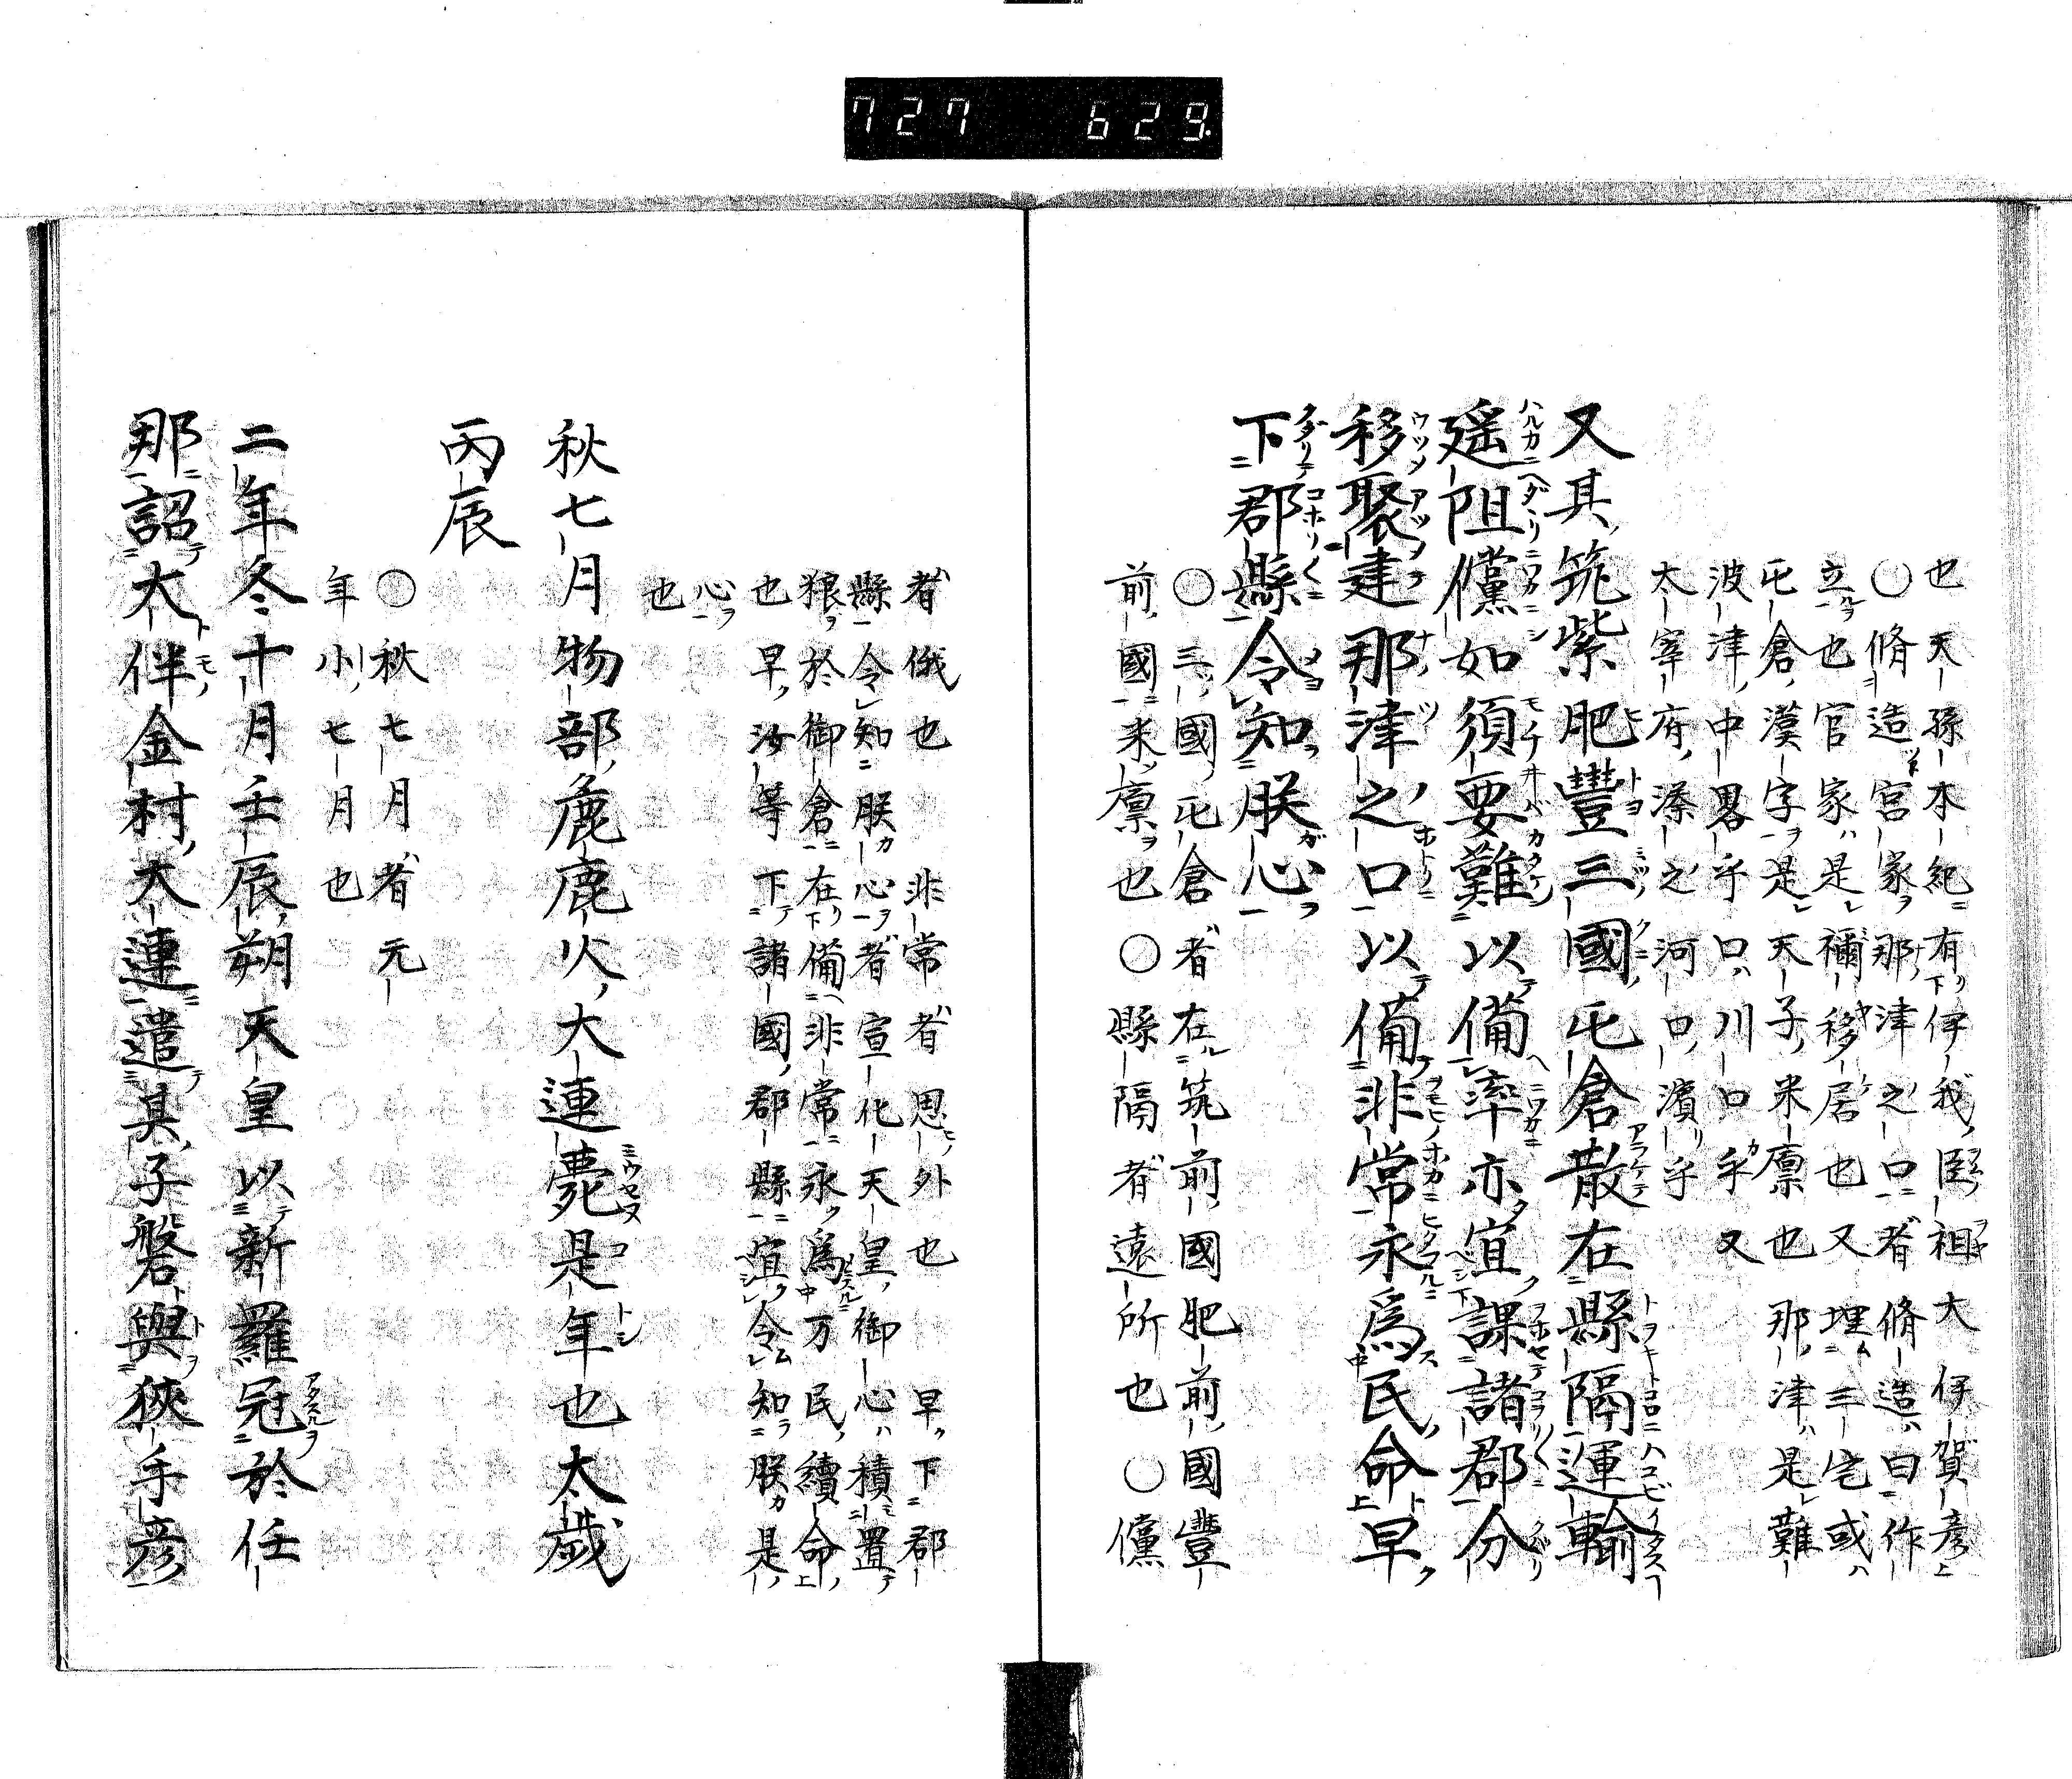 727 629
也天孫本紀有伊我臣祖大伊賀彦
○脩造宮家那津之口者脩造曰作
立也官家是禰移居也又埋三宅或
屯倉漢字是天子米廩也那津是難
波津中畧乎口川口乎又
太宰府溱之河口濱乎
又其筑紫肥豐三國屯倉散在縣隔運輸
遥阻儻如須要難以備率亦宜課諸郡分
移聚建那津之口以備非常永爲民命早
下郡縣令知朕心
○三國屯倉者在筑前國肥前國豐
前國米廩也○縣隔者遠所也○儻
者俄也非常者思外也早下郡
縣令知朕心者宣化天皇御心積置
粮於御倉在備非常永爲万民續命
也早汝等下諸國郡縣宜令知朕是
心
也
秋七月物部麁鹿火大連薨是年也太歳
丙辰
○秋七月者元
年小七月也
二年冬十月壬辰朔天皇以新羅冦於任
那詔大伴金村大連遣其子磐與狹手彦